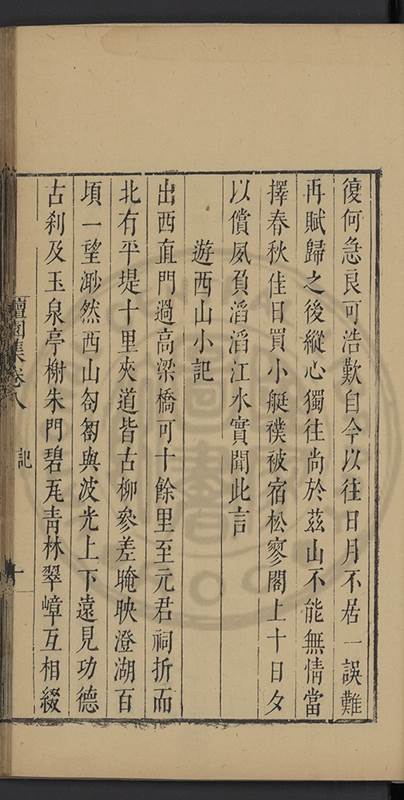 復何急良可浩歎自今以往日月不居一誤難
再賦歸之後縱心獨往尚於茲山不能無情當
擇春秋佳日買小艇襆被宿松寥閣上十日夕
以償夙負滔滔江水實聞此言
遊西山小記
出西直門過高梁橋可十餘里至元君祠折而
北有平堤十里夾道皆古柳參差掩映澄湖百
頃一望渺然西山匌㔩與波光上下遠見功德
古刹及玉泉亭榭朱門碧瓦青林翠嶂互相綴
檀園集卷八
記
十